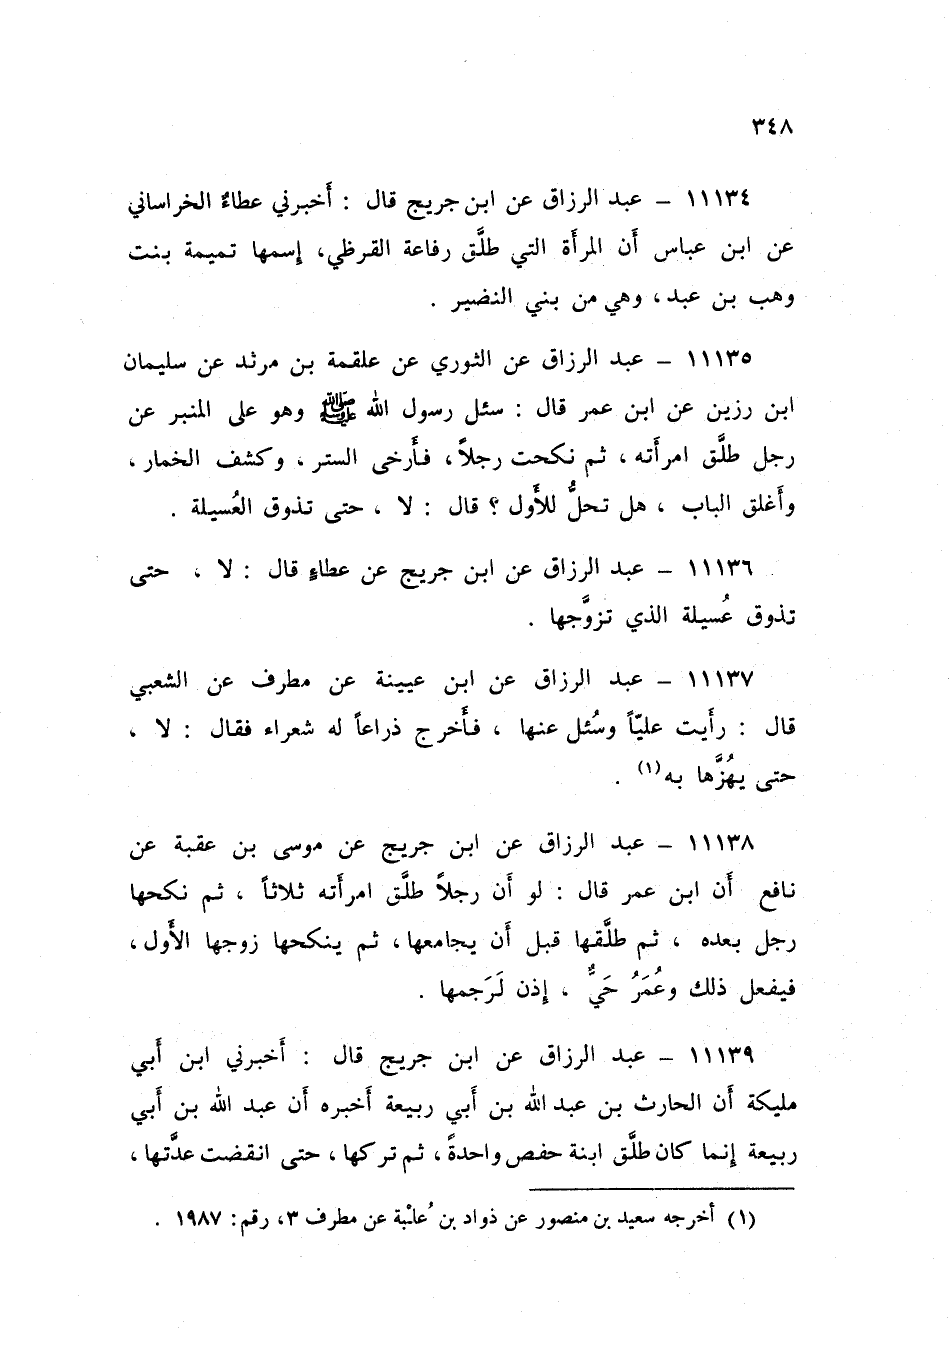 ٣٤٨
١١١٣٤ – عبد الرزاق عن ابن جريج قال : أخبرني عطاءٌ الخراساني
عن ابن عباس أن المرأة التي طلَّق رفاعة القرظي، إسمها تميمة بنت
وهب بن عبد، وهي من بني النضير .
١١١٣٥ – عبد الرزاق عن الثوري عن علقمة بن مرثد عن سليمان
ابن رزين عن ابن عمر قال : سئل رسول الله ﷺ وهو على المنبر عن
رجل طلَّق امرأته ، ثم نكحت رجلاً ، فأرخى الستر ، وكشف الخمار ،
وأغلق الباب ، هل تحلُّ للأول ؟ قال : لا ، حتى تذوق العُسيلة .
١١١٣٦ – عبد الرزاق عن ابن جريج عن عطاءٍ قال : لا ، حتى
تذوق عُسيلة الذي تزوَّجها .
١١١٣٧ – عبد الرزاق عن ابن عيينة عن مطرف عن الشعبي
قال : رأيت عليّاً وسُئل عنها ، فأخرج ذراعاً له شعراء فقال : لا ،
حتى يهُزَّها به(١) .
١١١٣٨ – عبد الرزاق عن ابن جريج عن موسى بن عقبة عن
نافع أن ابن عمر قال : لو أن رجلاً طلَّق امرأته ثلاثاً ، ثم نكحها
رجل بعده ، ثم طلَّقها قبل أن يجامعها، ثم ينكحها زوجها الأول،
فيفعل ذلك وعُمَرُ حَيٌّ ، إذن لَرَجمها .
١١١٣٩ – عبد الرزاق عن ابن جريج قال : أخبرني ابن أبي
مليكة أن الحارث بن عبد الله بن أبي ربيعة أخبره أن عبد الله بن أبي
ربيعة إنما كان طلَّق ابنة حفص واحدةً، ثم تركها، حتى انقضت عدَّتها،
(١) أخرجه سعيد بن منصور عن ذواد بن عُلبة عن مطرف ٣، رقم: ١٩٨٧ .